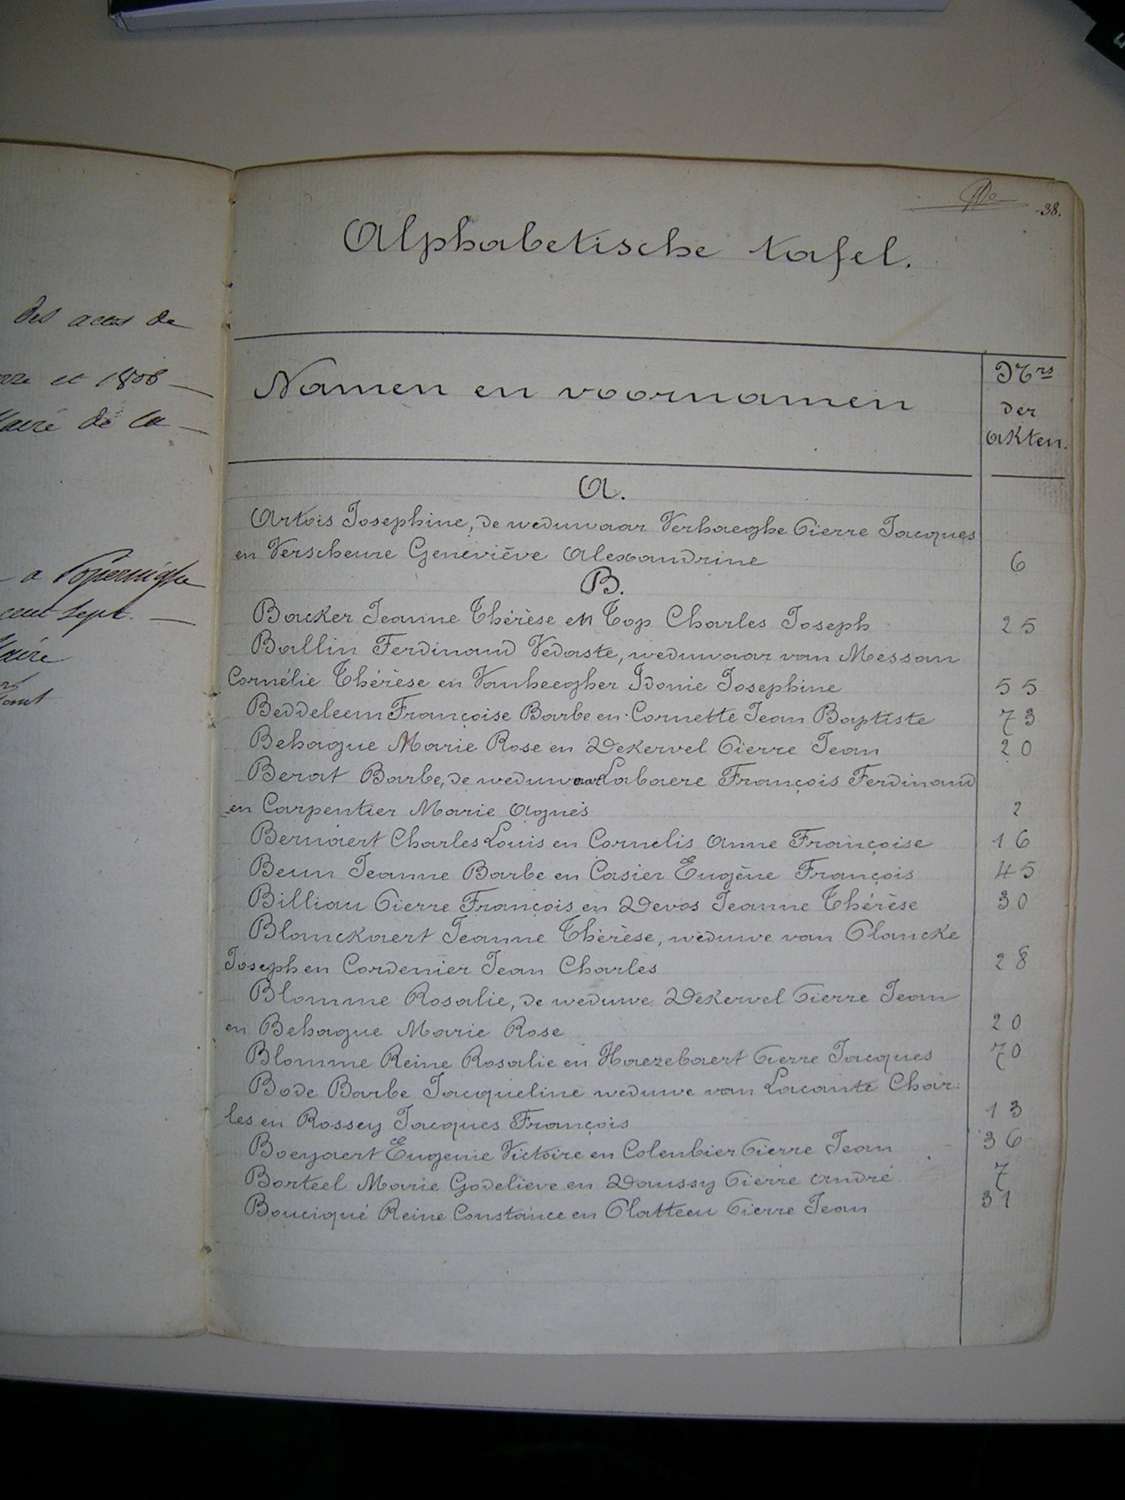 des actes de
et 1806
Maire de la
a Poperinghe
cent sept.
Maire
38.
Alphabetische tafel.
Namen en voornamen
Nrs
der
akten.
A.
Artois Josephine, de weduwaar Verhaeghe Pierre Jacques
en Verscheure Geneviève Alexandrine 6
B.
Backer Jeanne Thérèse en Top Charles Joseph 25
Ballin Ferdinand Vedaste, weduwaar van Messan
Cornélie Thérèse en Vanheegher Idonie Josephine 55
Beddeleem Françoise Barbe en Cornette Jean Baptiste 73
Behague Marie Rose en Dekervel Pierre Jean 20
Berat Barbe, de weduwaar Labaere François Ferdinand
en Carpentier Marie Agnès 2
Bernaert Charles Louis en Cornelis Anne Françoise 16
Beun Jeanne Barbe en Casier Eugène François 45
Billiau Pierre François en Devos Jeanne Thérèse 30
Blanckaert Jeanne Thérèse, weduwe van Plancke
Joseph en Cordenier Jean Charles 28
Blomme Rosalie, de weduwe Dekervel Pierre Jean
en Behague Marie Rose 20
Blomme Reine Rosalie en Haezebaert Pierre Jacques 70
Bode Barbe Jacqueline weduwe van Lacante Char-
les en Rossey Jacques François 13
Boeyaert Eugenie Victoire en Colenbier Pierre Jean 36
Borteel Marie Godelieve en Doussy Pierre André 7
Bouciqué Reine Constance en Platteeu Pierre Jean 31